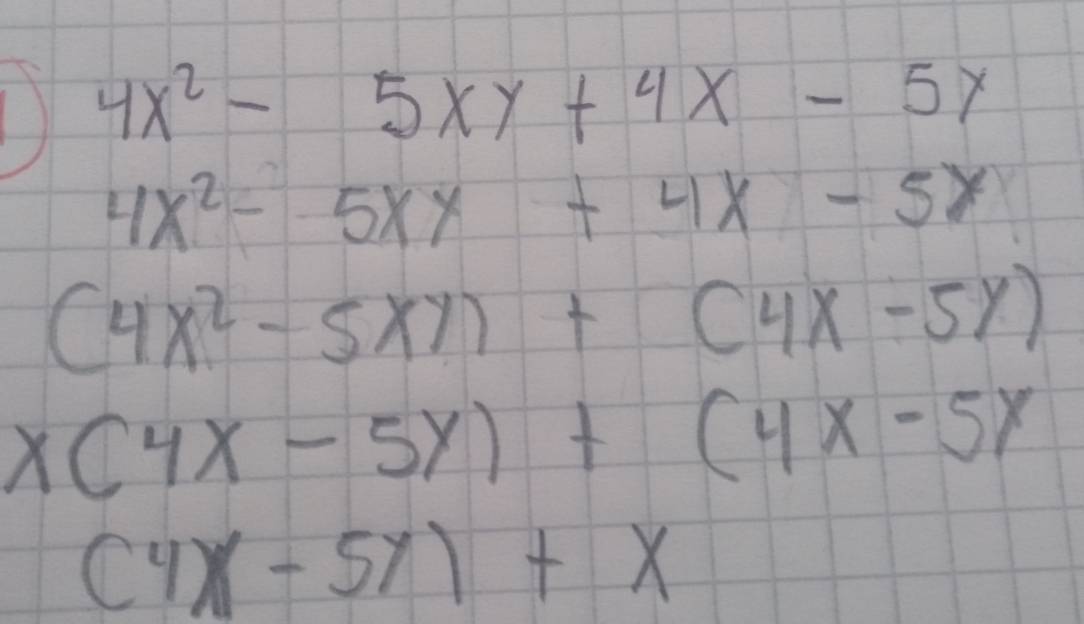 1) 4x² - 5xy + 4x - 5y
4x² - 5xy + 4x - 5y
(4x² - 5xy) + (4x - 5y)
x(4x - 5y) + (4x - 5y
(4x - 5y) + x